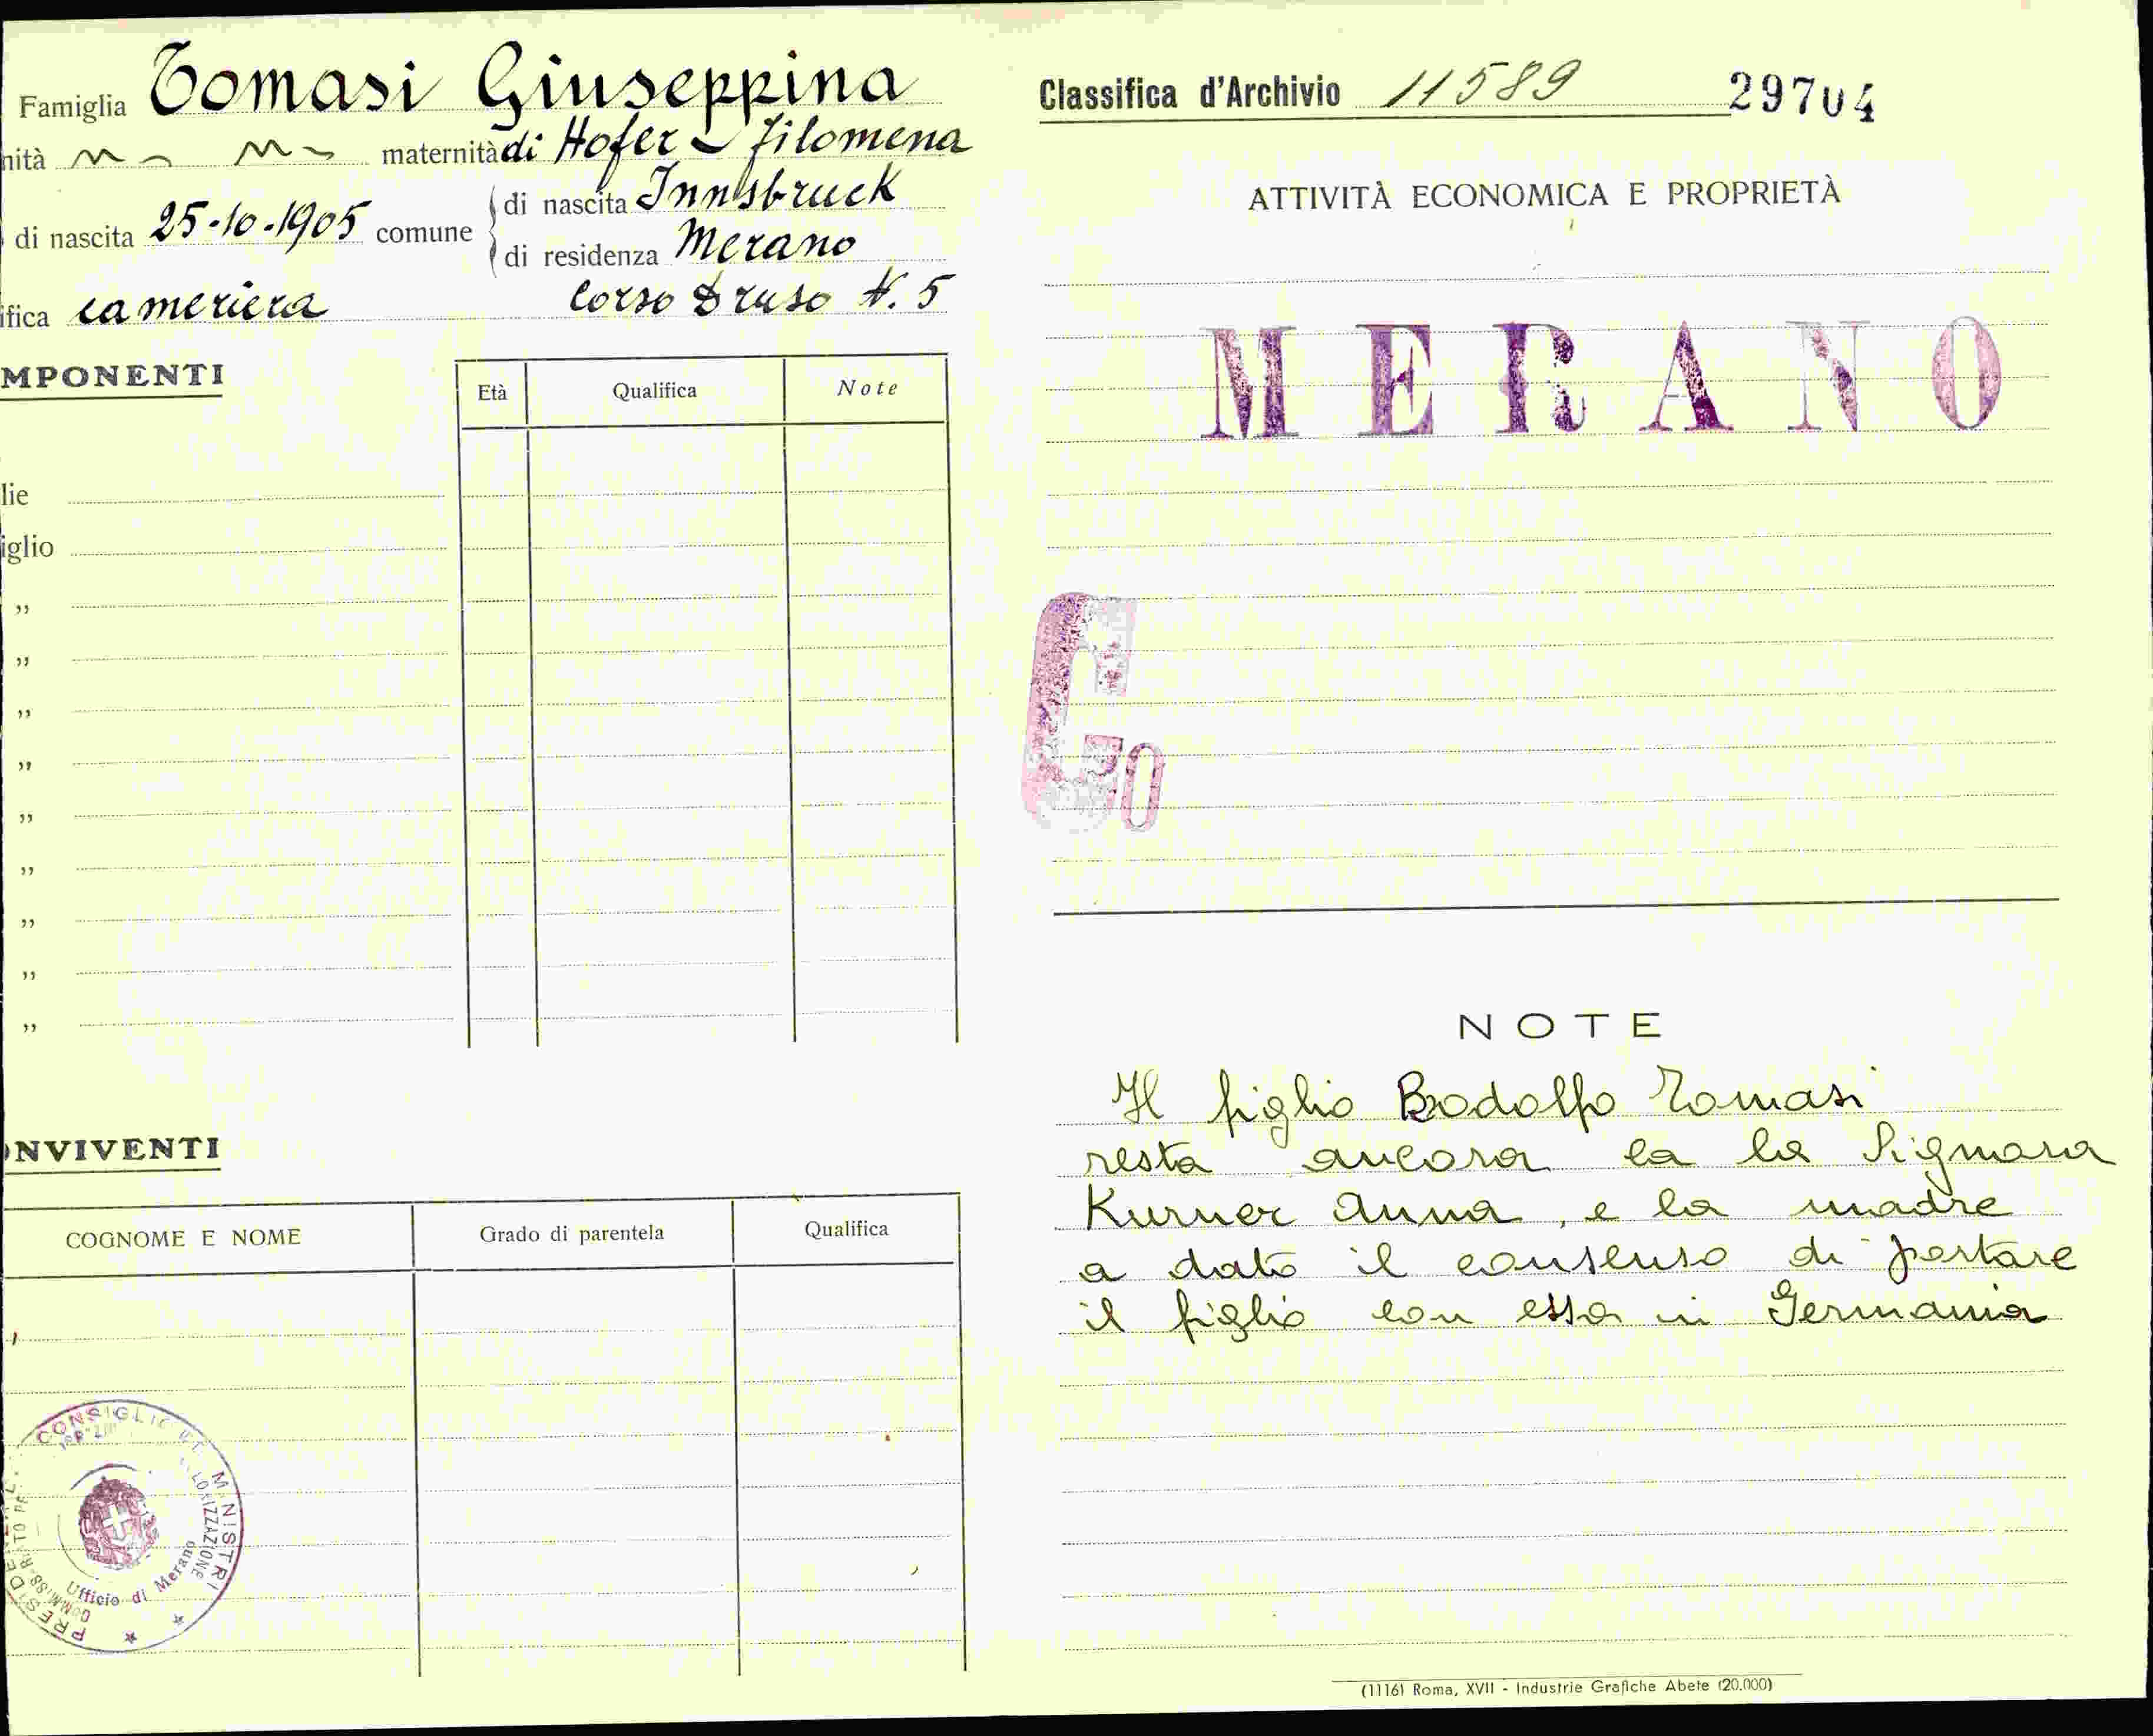 Famiglia Tomasi Giuseppina
nità maternità di Hofer Filomena
di nascita 25-10-1905 comune di nascita Innsbruck
di residenza Merano
ifica cameriera Corso Druso N. 5
MPONENTI
Età Qualifica Note
lie
iglio
„
„
„
„
„
„
„
„
„
ONVIVENTI
COGNOME E NOME Grado di parentela Qualifica
CONSIGLIO MINISTRI
Ufficio di Merano
Classifica d'Archivio 11589 29704
ATTIVITÀ ECONOMICA E PROPRIETÀ
MERANO
G0
NOTE
Il figlio Rodolfo Tomasi
resta ancora la la Signora
Kurner Anna, e la madre
a dato il consenso di portare
il figlio con essa in Germania
(1116) Roma, XVII - Industrie Grafiche Abete (20.000)